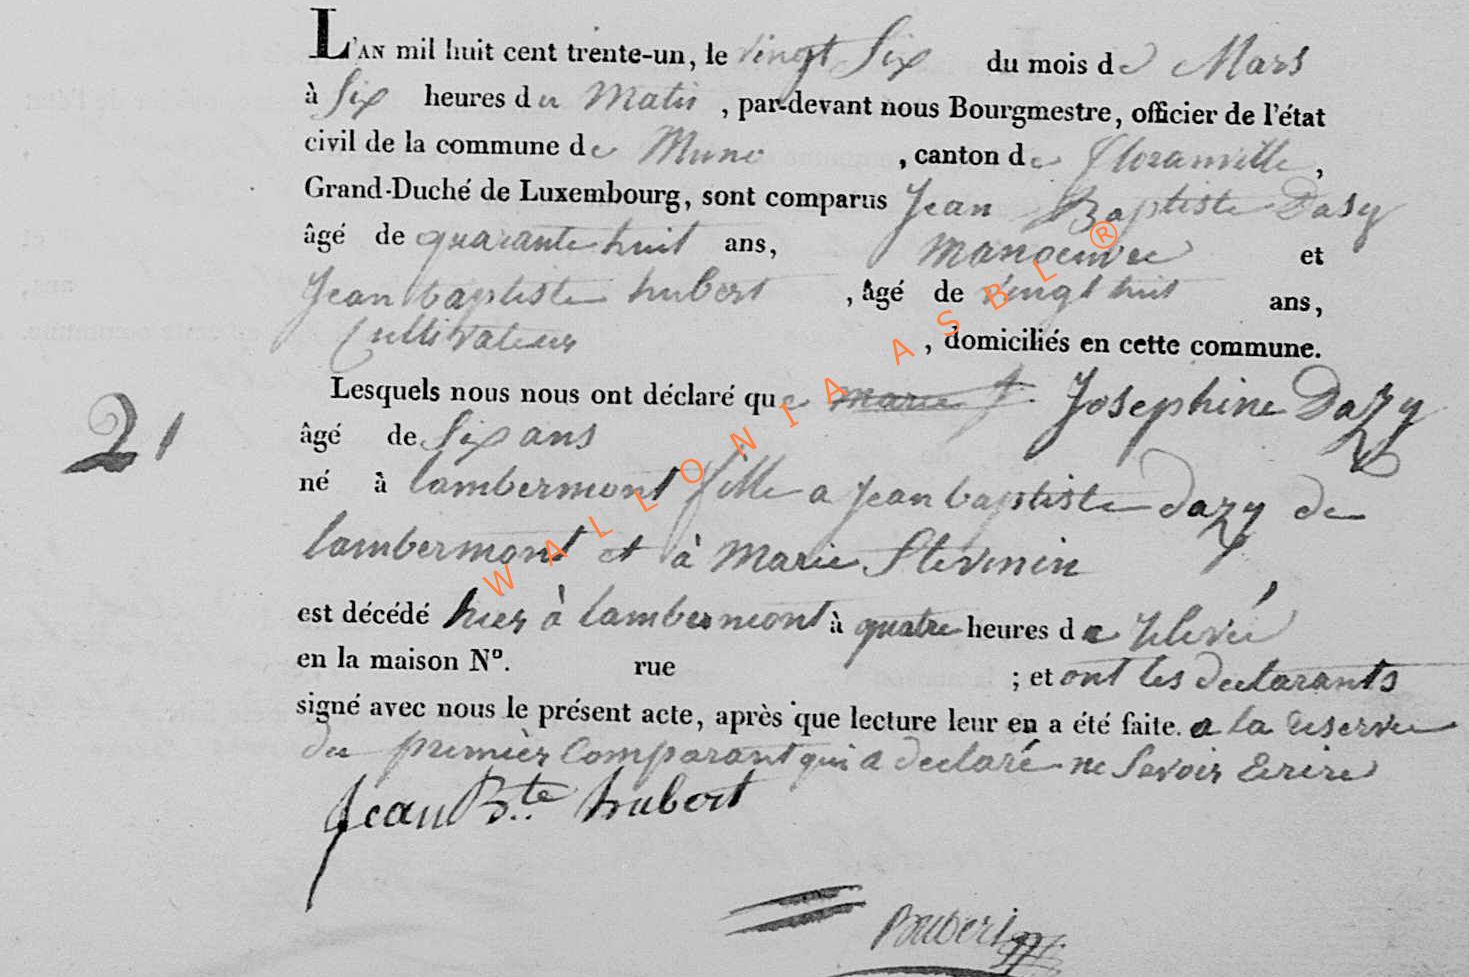 L'AN mil huit cent trente-un, le vingt Six du mois de Mars
à Six heures du Matin, par-devant nous Bourgmestre, officier de l'état
civil de la commune de Muno, canton de Floranville,
Grand-Duché de Luxembourg, sont comparus Jean Baptiste Dasy
âgé de quarante huit ans, manoeuvre et
Jean baptiste hubert, âgé de vingt huit ans,
Cultivateur, domiciliés en cette commune.
Lesquels nous nous ont déclaré que marie J. Josephine Dazy
21
âgé de six ans
né à lambermont fille a jean baptiste dazy de
lambermont et à Marie Stevenin
est décédé hier à lambermont à quatre heures de relevé
en la maison N°. rue ; et ont les declarants
signé avec nous le présent acte, après que lecture leur en a été faite. a la reserve
du premier Comparant qui a declaré ne Savoir Ecrire
Jean Bte hubert
WALLONIA ASBL ®